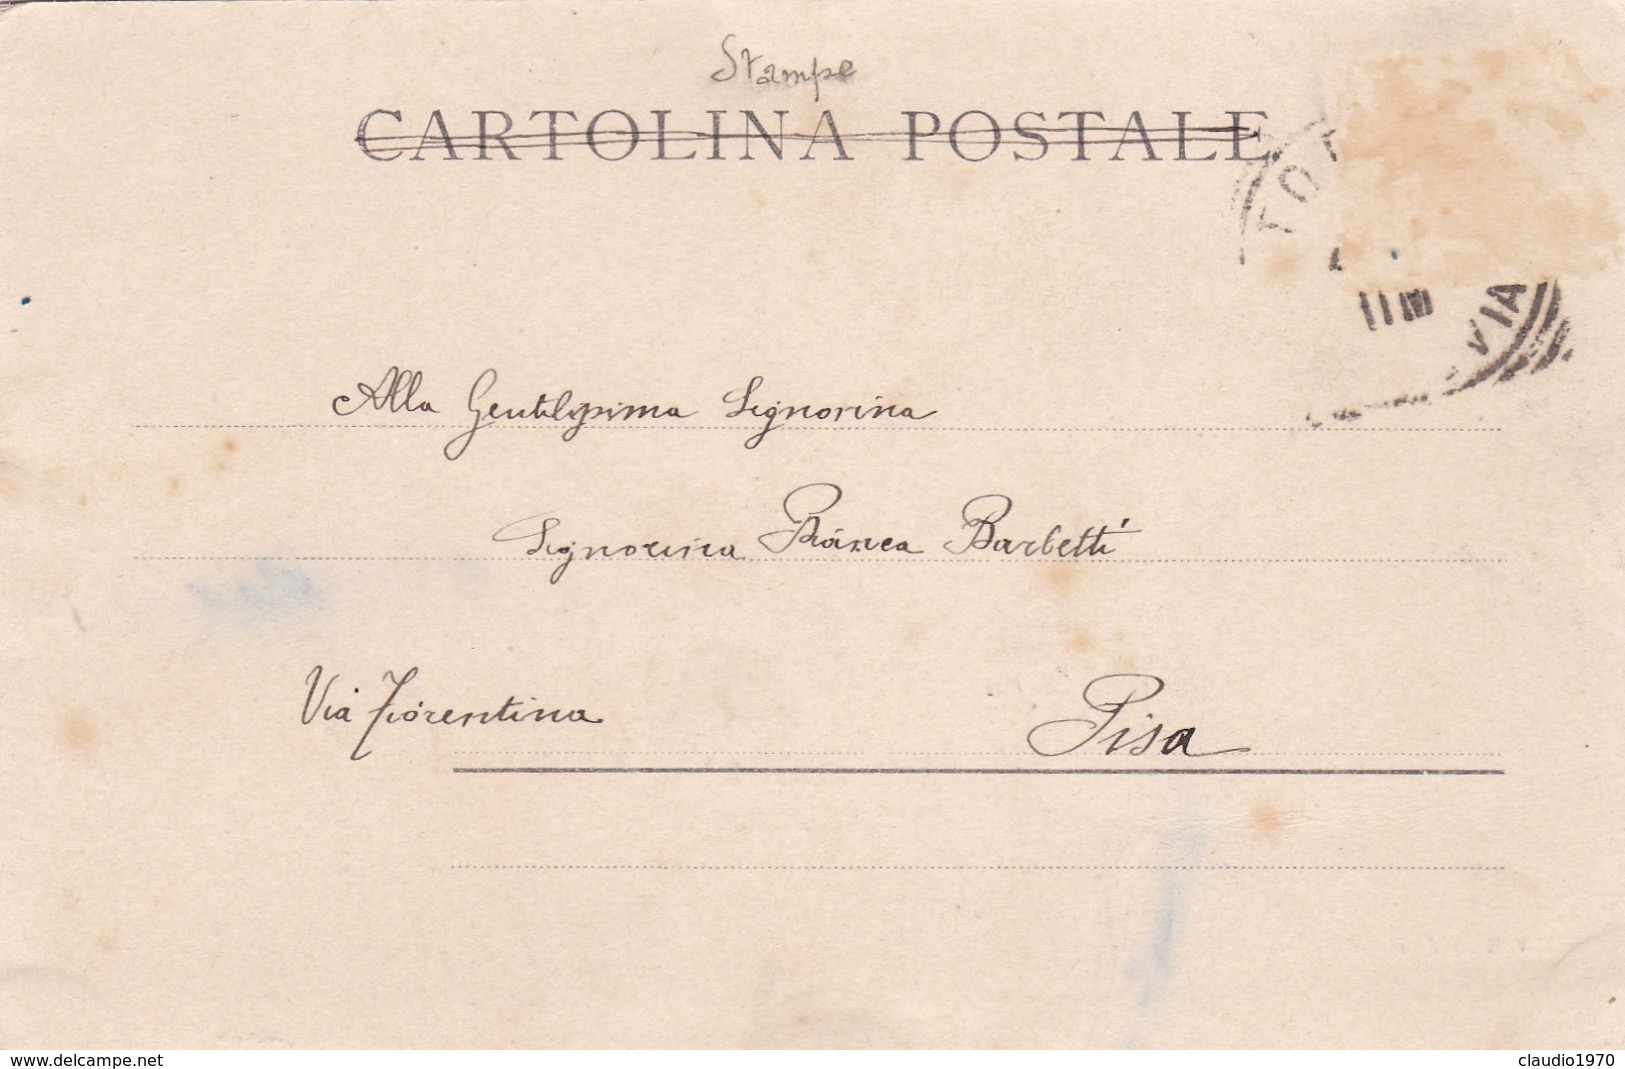 Stampe
CARTOLINA POSTALE
TO
VIA
Alla Gentilissima Signorina
Signorina Bianca Barbetti
Via Fiorentina
Pisa
www.delcampe.net
claudio1970